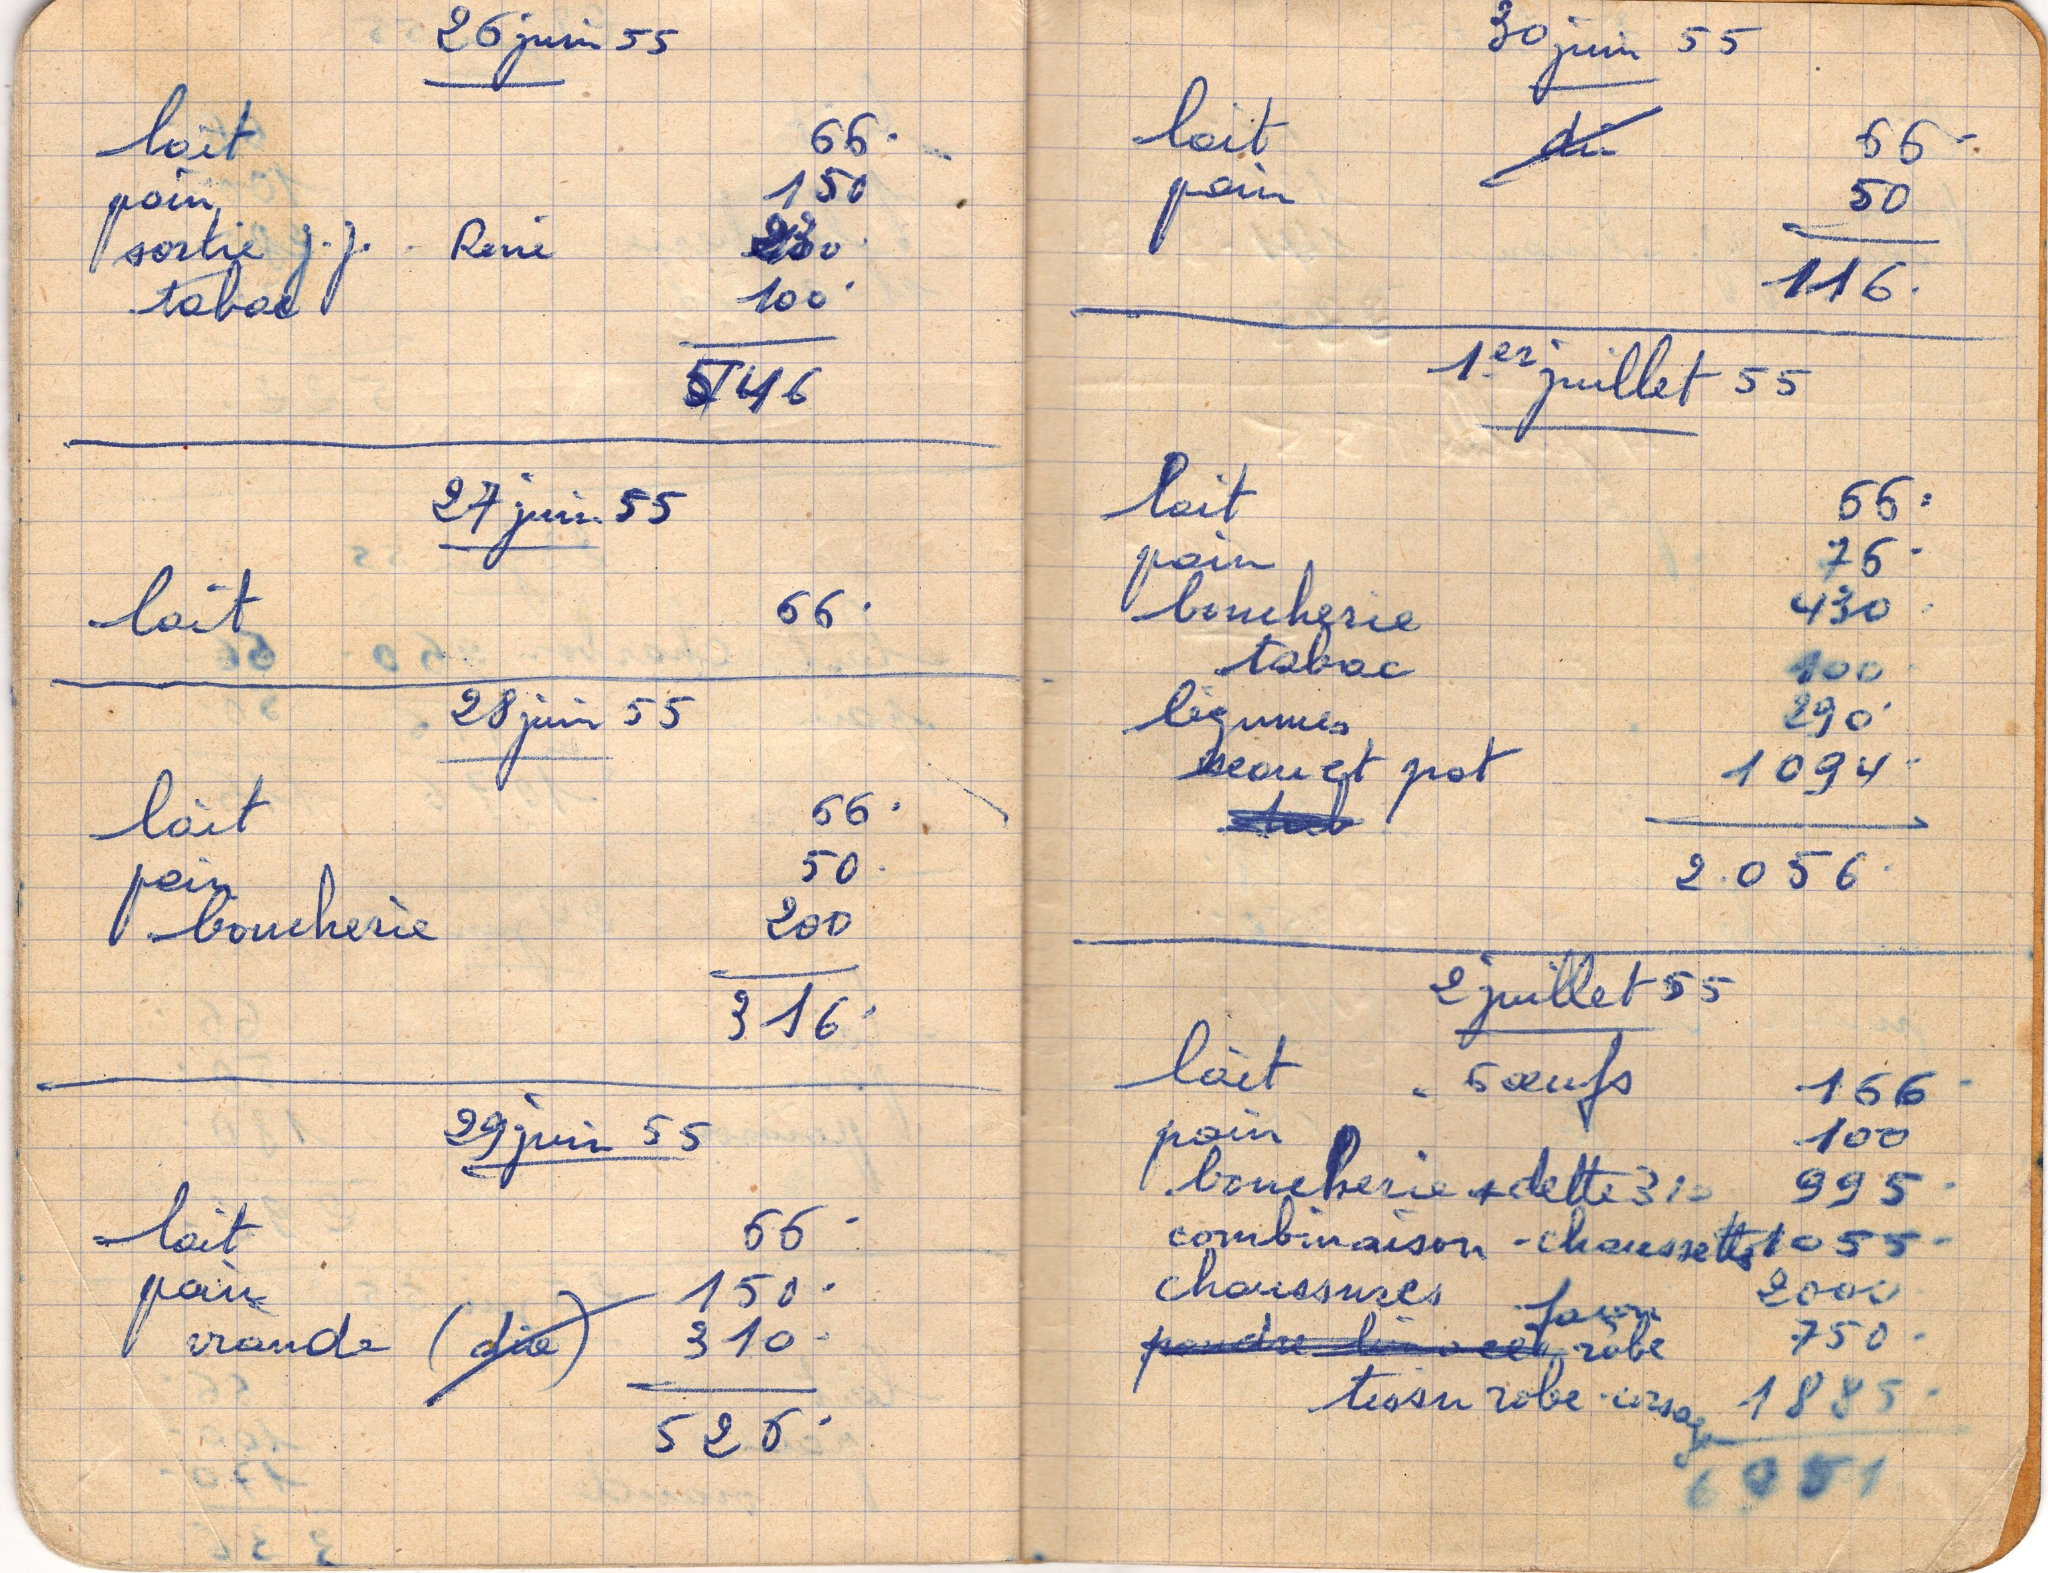 26 juin 55
lait 66.
pain 150
sortie J.J. - René 230.
tabac 100.
546
27 juin 55
lait 66.
28 juin 55
lait 66.
pain 50.
boucherie 200
316.
29 juin 55
lait 66.
pain 150.
viande (due) 310.
526.
30 juin 55
lait dû 66.
pain 50
116.
1er juillet 55
lait 66.
pain 76.
boucherie 430.
tabac 100.
légumes 290.
seau et pot 1094.
2.056.
2 juillet 55
lait - 5 œufs 166.
pain 100
boucherie + dette 310 995.
combinaison - chaussettes 1055.
chaussures 2000
façon
poudre robe 750.
tissu robe - corsage 1885.
6951